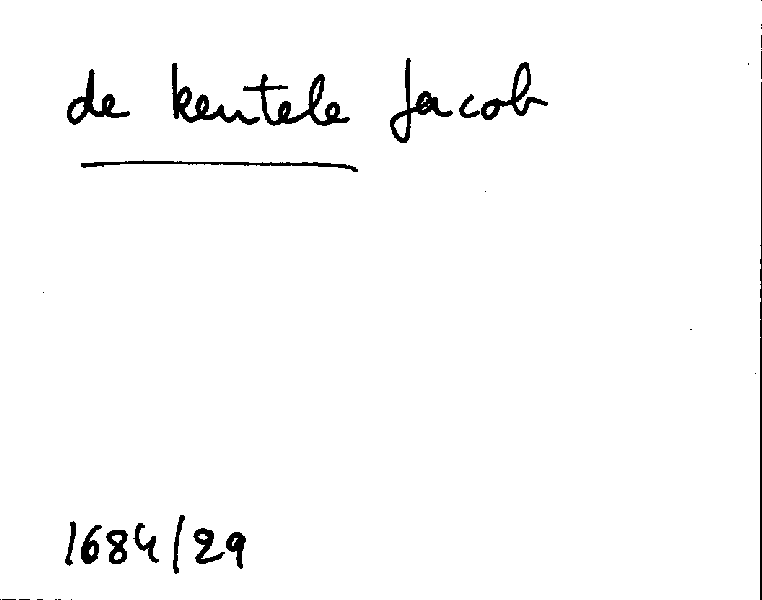 de keutele Jacob
1684/29